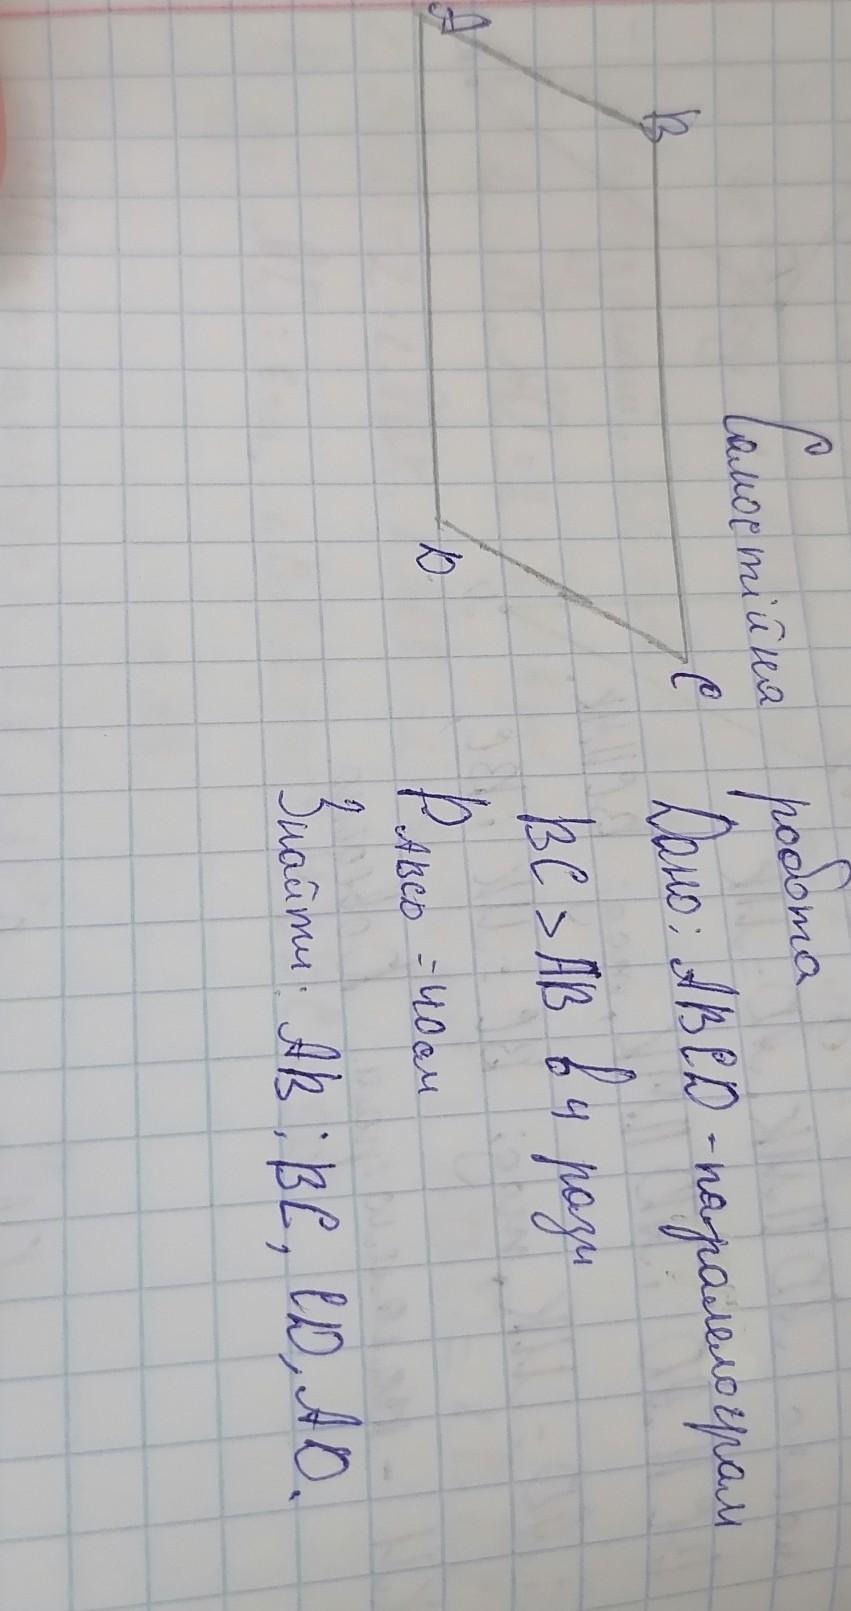 Самостійна робота
A
B
C
D
Дано: ABCD - паралелограм
BC > AB в 4 рази
P ABCD = 40 см
Знайти: AB; BC, CD, AD.